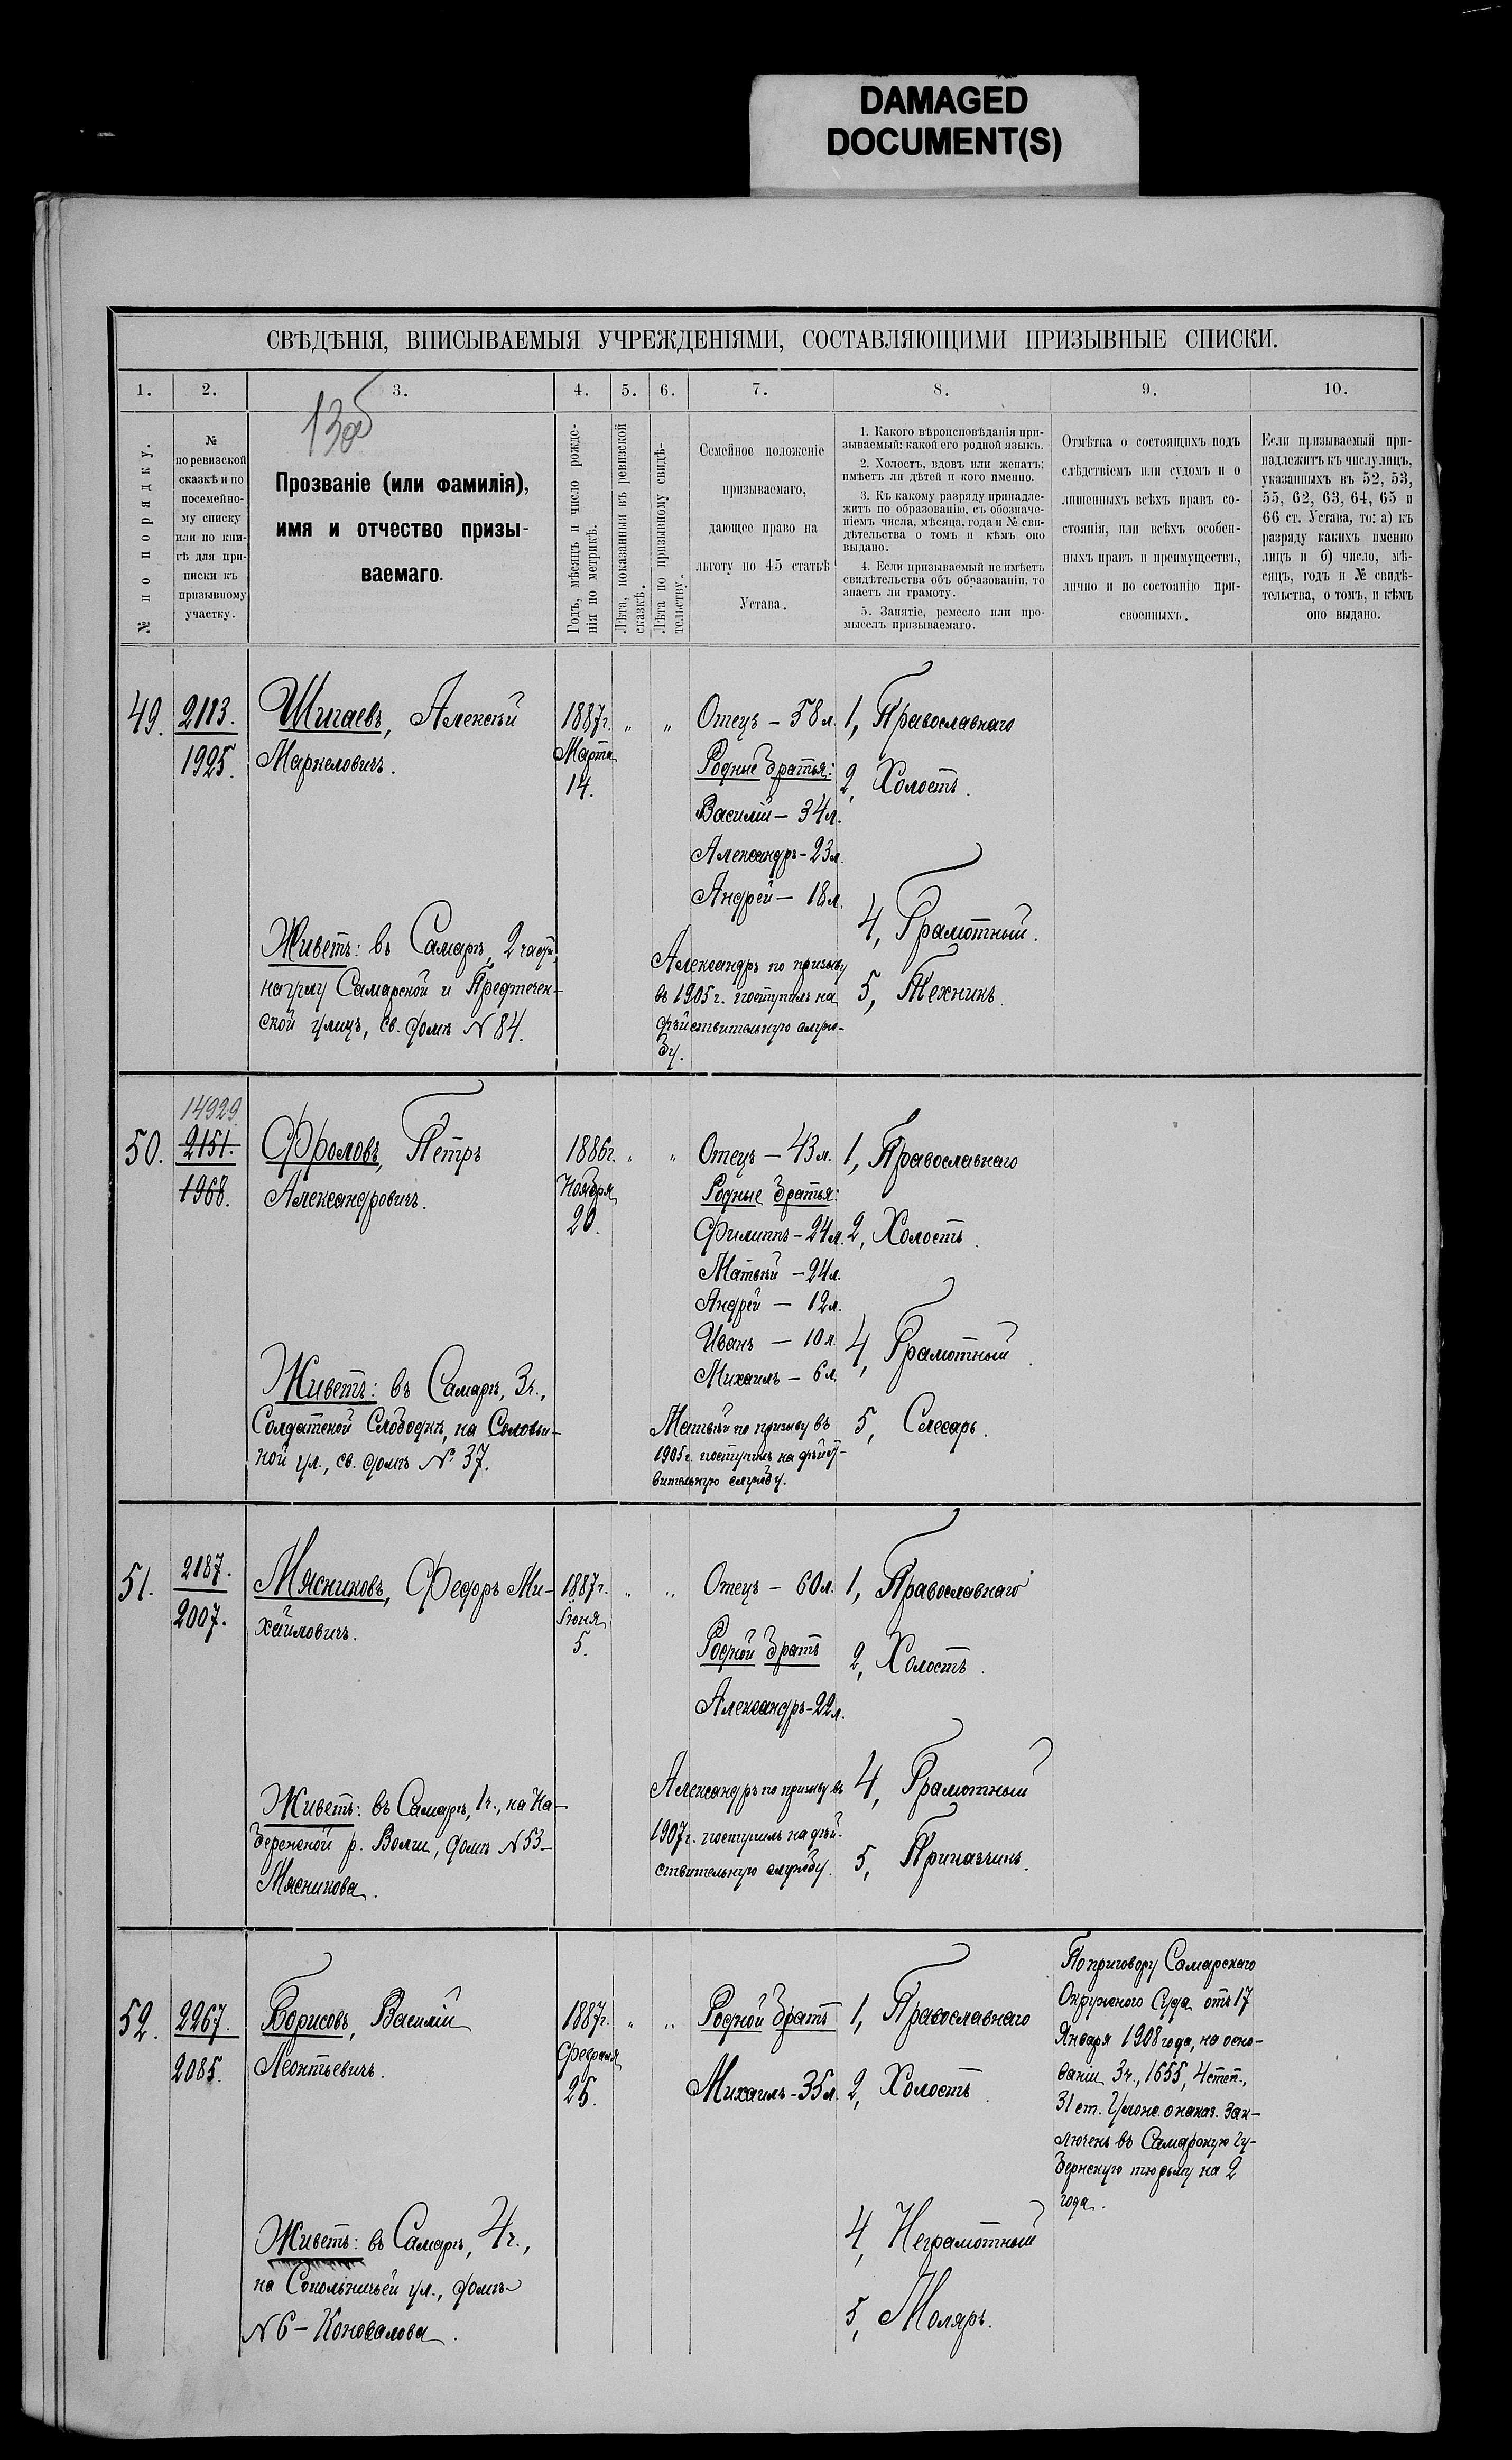 DAMAGED
DOCUMENT(S)
СВѢДѢНІЯ, ВПИСЫВАЕМЫЯ УЧРЕЖДЕНІЯМИ, СОСТАВЛЯЮЩИМИ ПРИЗЫВНЫЕ СПИСКИ.
1. 2. 3. 4. 5. 6. 7. 8. 9. 10.
№ по порядку.
№
по ревизской
сказкѣ и по
посемейно-
му списку
или по кни-
гѣ для при-
писки къ
призывному
участку.
Прозваніе (или фамилія),
имя и отчество призы-
ваемаго.
Годъ, мѣсяцъ и число рожде-
нія по метрикѣ.
Лѣта, показанныя въ ревизской
сказкѣ.
Лѣта по призывному свидѣ-
тельству.
Семейное положеніе
призываемаго,
дающее право на
льготу по 45 статьѣ
Устава.
1. Какого вѣроисповѣданія при-
зываемый: какой его родной языкъ.
2. Холостъ, вдовъ или женатъ:
имѣетъ ли дѣтей и кого именно.
3. Къ какому разряду принадле-
житъ по образованію, съ обозначе-
ніемъ числа, мѣсяца, года и № сви-
дѣтельства о томъ и кѣмъ оно
выдано.
4. Если призываемый не имѣетъ
свидѣтельства объ образованіи, то
знаетъ ли грамоту.
5. Занятіе, ремесло или про-
мыселъ призываемаго.
Отмѣтка о состоящихъ подъ
слѣдствіемъ или судомъ и о
лишенныхъ всѣхъ правъ со-
стоянія, или всѣхъ особен-
ныхъ правъ и преимуществъ,
лично и по состоянію при-
своенныхъ.
Если призываемый при-
надлежитъ къ числу лицъ,
указанныхъ въ 52, 53,
55, 62, 63, 64, 65 и
66 ст. Устава, то: а) къ
разряду какихъ именно
лицъ и б) число, мѣ-
сяцъ, годъ и № свидѣ-
тельства, о томъ, и кѣмъ
оно выдано.
49.
2113.
1925.
Алексѣй
Маркеловичъ.
Живетъ: въ Самарѣ, 2 части,
на углу Самарской и Предтечен-
ской улицъ, св. домъ № 84.
1887г.
Марта
14.
" "
Отецъ - 58 л.
Родные братья:
Василій - 34 л.
Александръ - 23 л.
Андрей - 18 л.
Александръ по призыву
въ 1905 г. поступилъ на
дѣйствительную служ-
бу.
1, Православнаго
2, Холостъ.
4, Грамотный.
5, Техникъ.
50.
14929
2151.
1968.
Фроловъ, Петръ
Александровичъ.
Живетъ: въ Самарѣ, 3 ч.,
Солдатской Слободкѣ, на Соловьи-
ной ул., св. домъ № 37.
1886г.
Ноября
20.
" "
Отецъ - 43 л.
Родные братья:
Филиппъ - 24 л.
Матвѣй - 24 л.
Андрей - 12 л.
Иванъ - 10 л.
Михаилъ - 6 л.
Матвѣй по призыву въ
1905 г. поступилъ на дѣйст-
вительную службу.
1, Православнаго
2, Холостъ.
4, Грамотный.
5, Слесарь.
51.
2187.
2007.
Мясниковъ, Федоръ Ми-
хайловичъ.
Живетъ: въ Самарѣ, 1 ч., на На-
бережной р. Волги, домъ № 53 -
Мясникова.
1887г.
Іюня
5.
" "
Отецъ - 60 л.
Родной братъ
Александръ - 22 л.
Александръ по призыву въ
1907 г. поступилъ на дѣй-
ствительную службу.
1, Православнаго
2, Холостъ.
4, Грамотный
5, Приказчикъ.
52.
2267.
2085.
Борисовъ, Василій
Леонтьевичъ.
Живетъ: въ Самарѣ, 4 ч.,
на Сокольничьей ул., домъ
№ 6 - Коновалова.
1887г.
Февраля
25.
" "
Родной братъ
Михаилъ - 35 л.
1, Православнаго
2, Холостъ.
4, Неграмотный
5, Маляръ.
По приговору Самарскаго
Окружного Суда отъ 17
Января 1908 года, на осно-
ваніи 3 ч., 1655, 4 степ.,
31 ст. Улож. о наказ. Зак-
люченъ въ Самарскую Гу-
бернскую тюрьму на 2
года.